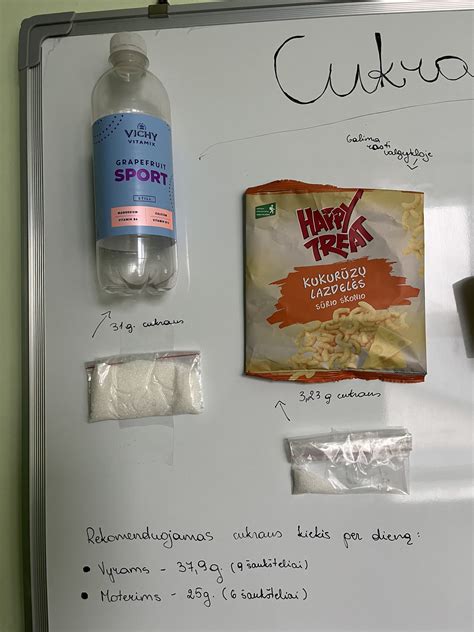 Cukra
Galima
rasti
valgykloje
VICHY
VITAMIX
GRAPEFRUIT
SPORT
MAGNESIUM
CALCIUM
VITAMIN B6
HAPPY
TREAT
KUKURŪZŲ
LAZDELĖS
SŪRIO SKONIO
31 g. cukraus
3,23 g cukraus
Rekomenduojamas cukraus kiekis per dieną:
• Vyrams - 37,9 g. (9 šaukšteliai)
• Moterims - 25g. (6 šaukšteliai)